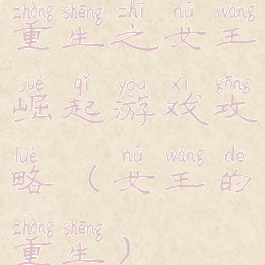 zhòng shēng zhī nǚ wáng
重生之女王
jué qǐ yóu xì gōng
崛起游戏攻
lüè nǚ wáng de
略（女王的
zhòng shēng
重生）